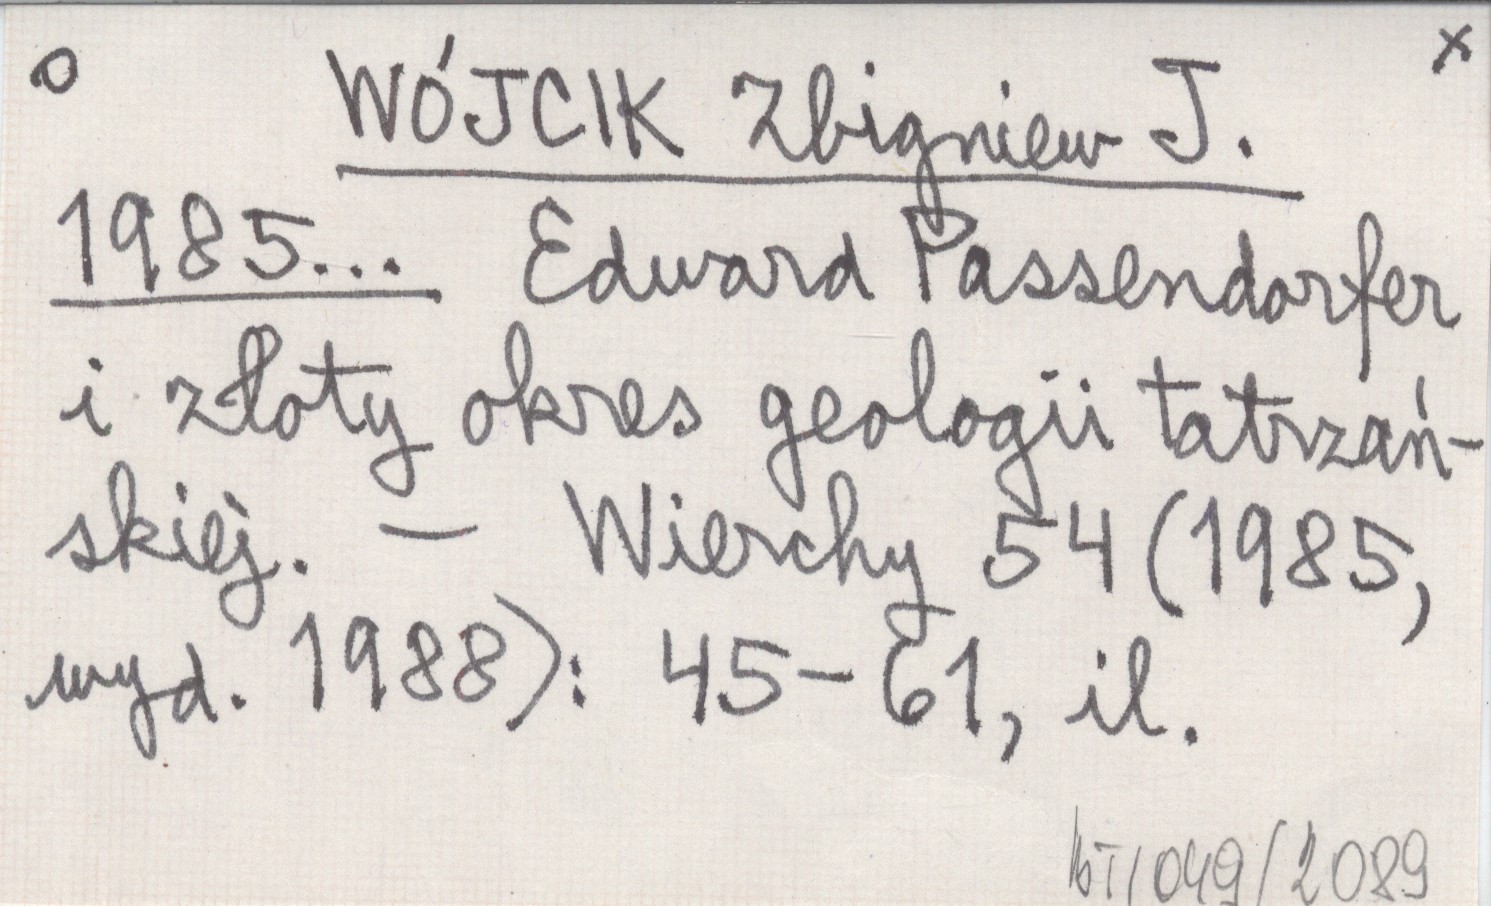 o WÓJCIK Zbigniew J. x
1985... Edward Passendorfer
i złoty okres geologii tatrzań-
skiej. — Wierchy 54 (1985,
wyd. 1988): 45-61, il.
/049/2089